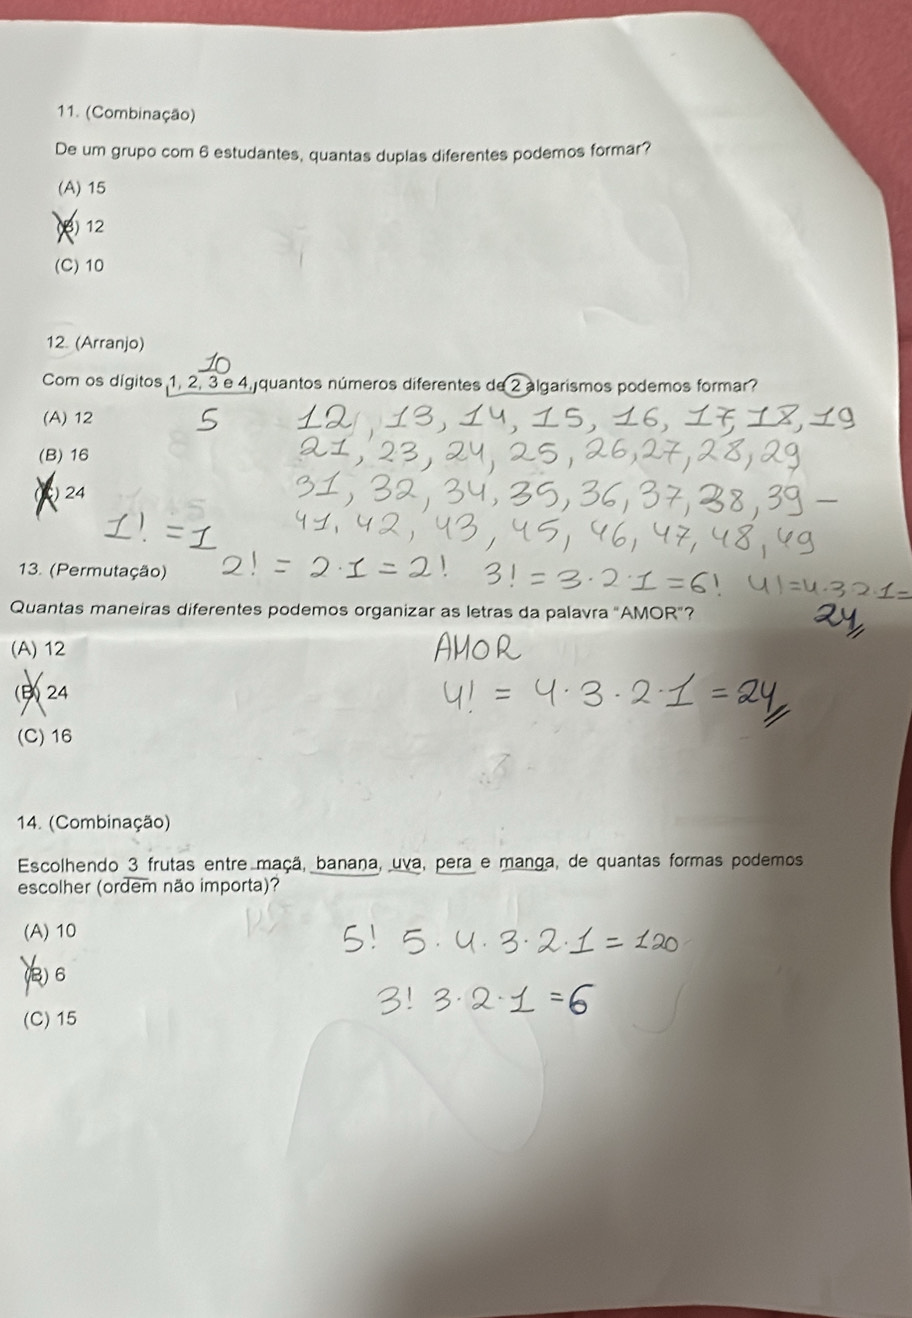 11. (Combinação)
De um grupo com 6 estudantes, quantas duplas diferentes podemos formar?
(A) 15
(B) 12
(C) 10
12. (Arranjo)
10
Com os dígitos 1, 2, 3 e 4, quantos números diferentes de 2 algarismos podemos formar?
(A) 12
5 12, 13, 14, 15, 16, 17, 18, 19
(B) 16
21, 23, 24, 25, 26, 27, 28, 29
(C) 24
31, 32, 34, 35, 36, 37, 38, 39 -
1! = 1
41, 42, 43, 45, 46, 47, 48, 49
13. (Permutação)
2! = 2·1 = 2! 3! = 3·2·1 = 6! 4! = 4·3·2·1 =
24
Quantas maneiras diferentes podemos organizar as letras da palavra "AMOR"?
(A) 12
AMOR
(B) 24
4! = 4·3·2·1 = 24
(C) 16
14. (Combinação)
Escolhendo 3 frutas entre maçã, banana, uva, pera e manga, de quantas formas podemos
escolher (ordem não importa)?
(A) 10
5! 5·4·3·2·1 = 120
(B) 6
3! 3·2·1 = 6
(C) 15